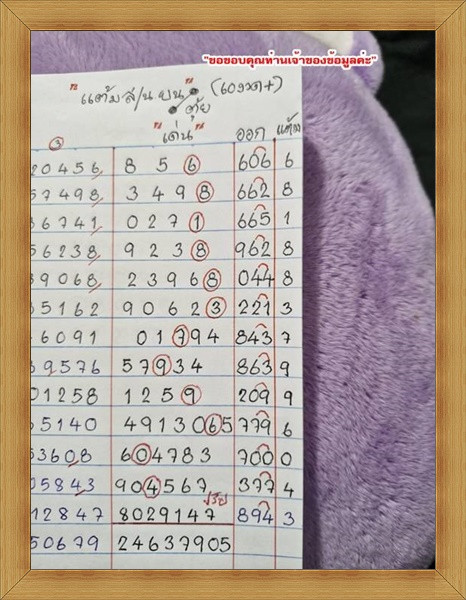 "ขอขอบคุณท่านเจ้าของข้อมูลค่ะ"
"แต้ม ส/น บน" (เองวด+)
ตุ้ย
"เด่น" ออก แต้ม
③
20456 8 5 6 606 6
57498 3 4 9 8 662 8
36741 0 2 7 1 665 1
56238 9 2 3 8 962 8
39068 2 3 9 6 8 044 8
35162 9 0 6 2 3 221 3
6091 0 1 7 9 4 843 7
39576 5 7 9 3 4 863 9
01258 1 2 5 9 209 9
65140 4 9 1 3 0 6 5 779 6
53608 6 0 4 7 8 3 700 0
05843 9 0 4 5 6 7 377 4
12847 8 0 2 9 1 4 7 894 3
50679 2 4 6 3 7 9 0 5